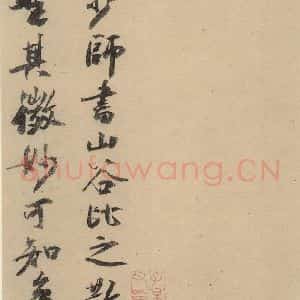 少師書山谷比之
其微妙可知
Shufawang.CN